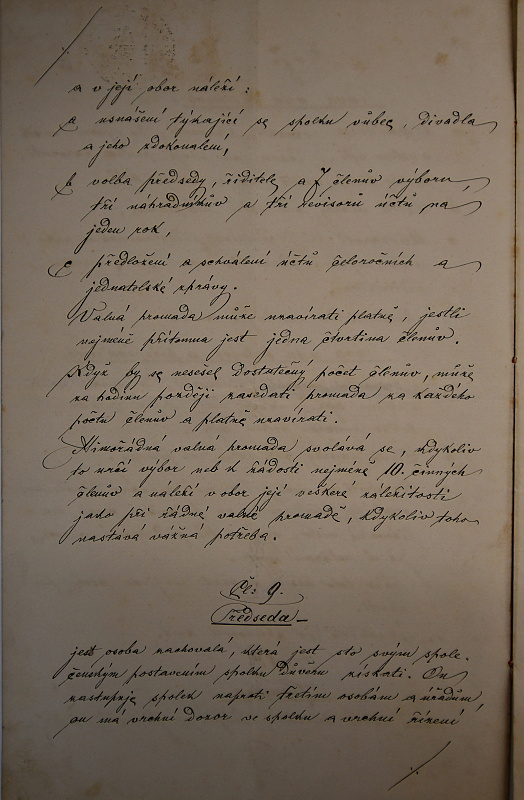 a v její obor náleží:
a usnášení týkající se spolku vůbec, divadla
a jeho zdokonalení,
b volba předsedy, řiditele a 7 členův výboru,
tří náhradníkův a tří revisorů účtů na
jeden rok,
c předložení a schválení účtů celoročních a
jednatelské zprávy.
Valná hromada může uzavírati platně, jestli
nejméně přítomna jest jedna čtvrtina členův.
Když by se nesešel dostatečný počet členův, může
za hodinu později zasedati hromada za každého
počtu členův a platně uzavírati.
Mimořádná valná hromada svolává se, kdykoliv
to určí výbor neb k žádosti nejméně 10. činných
členův a náleží v obor její veškeré záležitosti
jako při řádné valné hromadě, kdykoliv toho
nastává vážná potřeba.
Čl: 9.
Předseda
jest osoba zachovalá, která jest sto svým spole-
čenským postavením spolku důvěru získati. On
zastupuje spolek naproti třetím osobám a úřadům,
on má vrchní dozor ve spolku a vrchní řízení